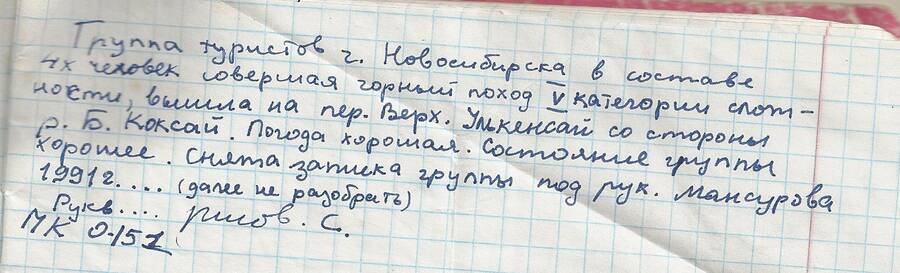 Группа туристов г. Новосибирска в составе
4х человек совершая горный поход V категории слот-
ности, вышла на пер. Верх. Улкенсай со стороны
р. Б. Коксай. Погода хорошая. Состояние группы
хорошее. Снята записка группы под рук. Мансурова
1991г. ... (далее не разобрать)
Рукв....
МК 0-151